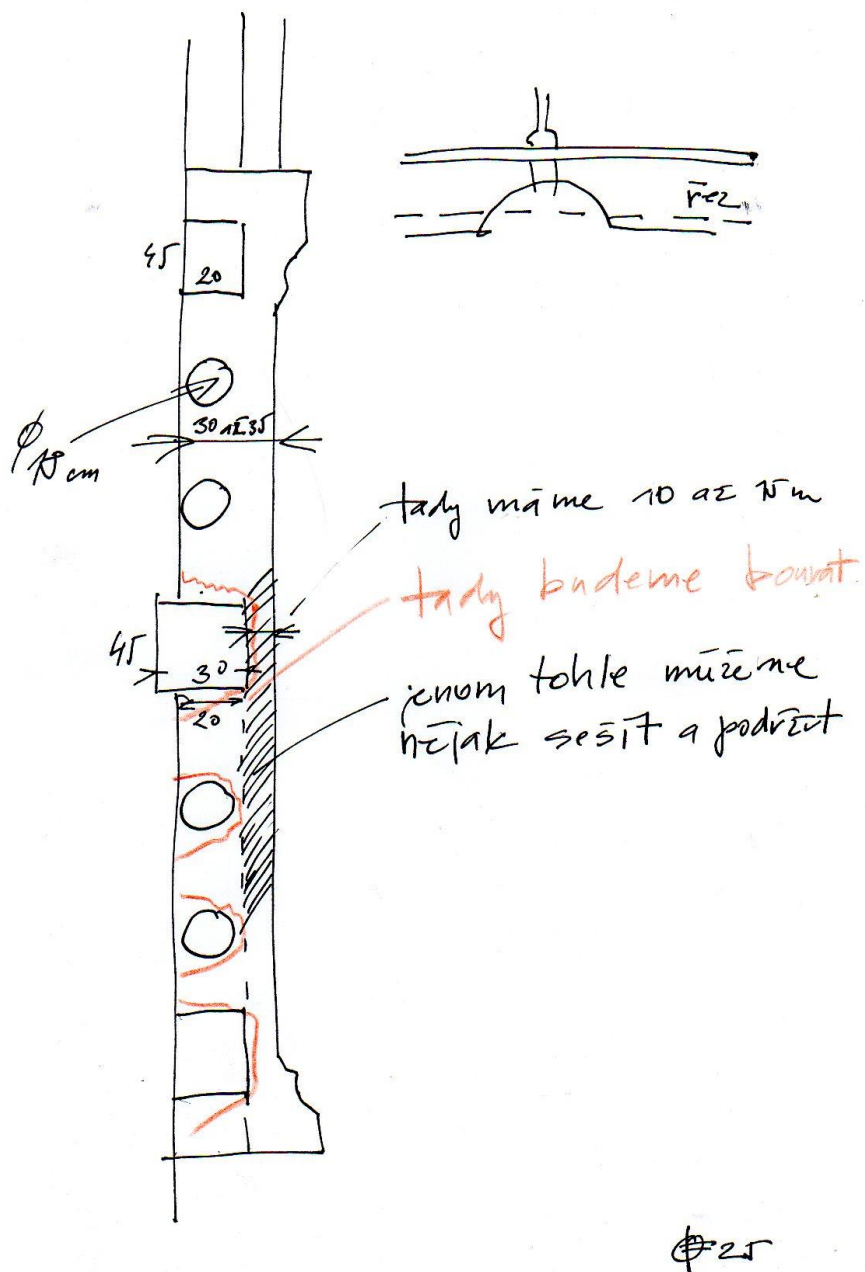 řez
45
20
φ 18 cm
30 až 35
tady máme 10 až 15 m
tady budeme bourat
45
30
20
jenom tohle můžeme
nějak sešít a podržet
φ 25